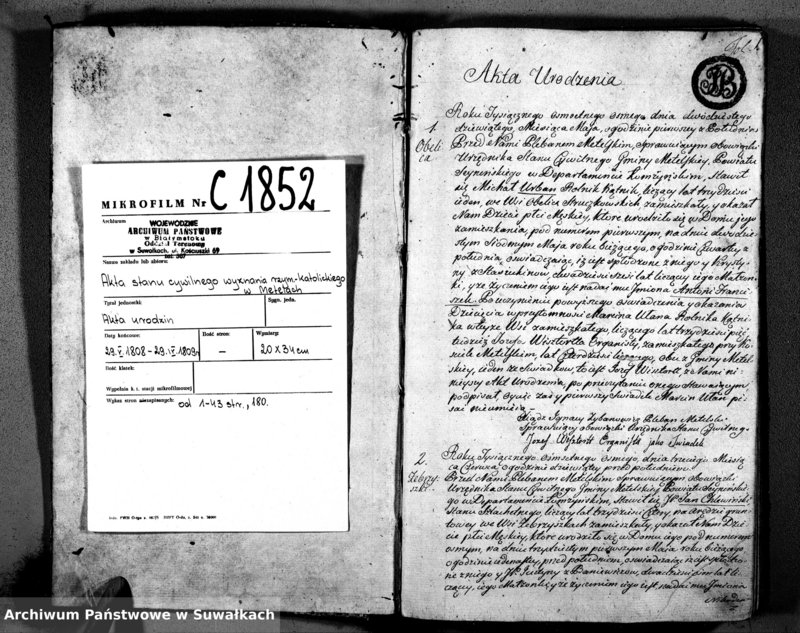 MIKROFILM Nr C 1852
Archiwum
WOJEWODZKIE
ARCHIWUM PAŃSTWOWE
w Białymstoku
Oddział Terenowy
w Suwałkach, ul. Kościuszki 69
Nazwa zakładu lub zbioru:
Akta stanu cywilnego wyznania rzym-katolickiego
w Metelach
Tytuł jednostki:
Sygn. jedn.
Akta urodzin
Daty końcowe:
Ilość stron:
Wymiary:
29.V 1808 - 29.IV 1809r
—
20 x 34 cm
Ilość klatek:
Wypełnia k. t. stacji mikrofilmowej
Wykaz stron niezapisanych: od 1-43 str., 180.
Akta Urodzenia
1.
Roku Tysiącznego osmsetnego osmego dnia dwódziestego
dziewiątego, Miesiąca Maja, o godzinie pierwszey z Południa
Przed Nami Plebanem Metelskim, Sprawuiącym obowiązki
Urzędnika Stanu Cywilnego Gminy Metelskiey, Powiatu
Seyneńskiego w Departamencie Łomżyńskim, Stawił
się Michał Urban Rolnik Kątnik, liczący lat trzydzieści
ieden, we Wsi Obelica zamieszkały, y okazał
Nam Dziecie płci Męskiey, ktore urodziło się w Domu iego
zamieszkania, pod numerem pierwszym, na dniu dwudzie-
stym Siodmym Maja roku bieżącego, o godzinie Czwartey z
południa, oświadczaiąc, iż iest spłodzone z niego y Krysty-
ny z Stasiukinow, dwadzieścia sześć lat liczącey iego Małżon-
ki, y że życzeniem iego iest nadać mu Jmiona Antoni Franci-
szek. Po uczynieniu powyższego oświadczenia y okazaniu
Dziecięcia w przytomności Marcina Ulana Rolnika Kątni-
ka w teyże Wsi zamieszkałego, liczącego lat trzydzieści pięć,
tudzież Jozefa Wisztorta Organisty, zamieszkałego przy Ko-
ściele Metelskim, lat czterdzieści liczącego, obu z Gminy Metel-
skiey, ieden ze Swiadkow, to iest Jozef Wisztort, z Nami ni-
nieyszy Akt Urodzenia, po przeczytaniu onego stawaiącym,
podpisał, oyciec zaś y pierwszy Swiadek Marcin Ulan pi-
sać nieumieią.—
Xiądz Ignacy Pleban Metelski
Sprawuiący obowiązki Urzędnika Stanu Cywilnego
Jozef Wisztortt Organista jako Swiadek
2.
Roku Tysiącznego osmsetnego osmego, dnia trzeciego Miesią-
ca Czerwca, o godzinie dziewiątey przed południem
Przed Nami Plebanem Metelskim Sprawuiącym obowiązki
Urzędnika Stanu Cywilnego Gminy Metelskiey, Powiatu Seyneńskiego
w Departamencie Łomżyńskim, Stawił się JP. Jan
Stanu Szlachetnego, liczący lat trzydzieści cztery, na części grun-
towey we Wsi Zebrzyszkach zamieszkały, y okazał Nam Dzie-
cie płci Męskiey, ktore urodziło się w Domu iego pod numerem
osmym, na dniu trzydziestym pierwszym Maja, roku bieżącego,
o godzinie iedenastey, przed południem, oświadczaiąc iż iest spłodzo-
ne z niego y JP. Justyny z
iego Małżonki, y że życzeniem iego iest, nadać mu Jmiona
Archiwum Państwowe w Suwałkach